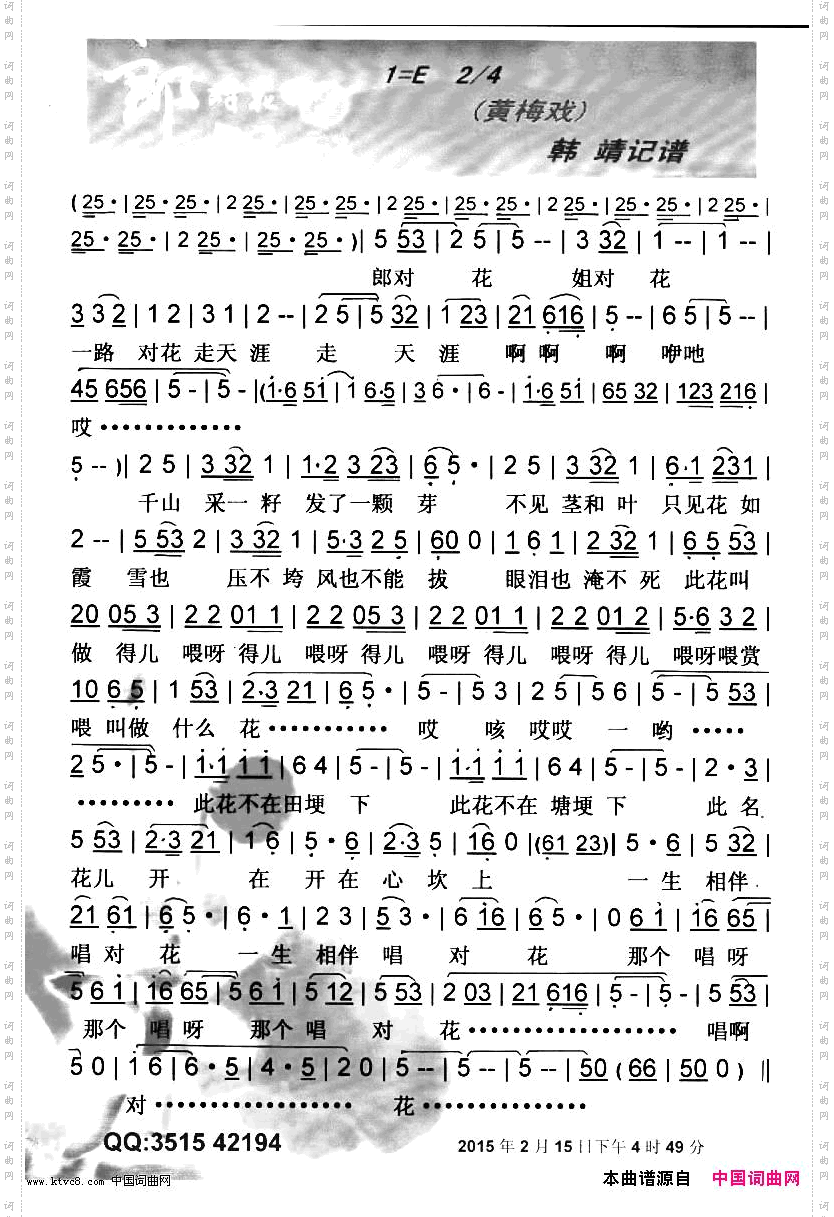 郎对花
1=E 2/4
(黄梅戏)
韩 靖记谱
( 25· | 25· 25· | 2 25· | 25· 25· | 2 25· | 25· 25· | 2 25· | 25· 25· | 2 25· |
25· 25· | 2 25· | 25· 25· )| 5 53 | 2 5 | 5 -- | 3 32 | 1 -- | 1 -- |
郎对 花 姐对 花
3 3 2 | 1 2 | 3 1 | 2 -- | 2 5 | 5 32 | 1 23 | 21 616 | 5 -- | 6 5 | 5 -- |
一路 对花 走天 涯 走 天 涯 啊 啊 啊 咿吔
45 656 | 5 - | 5 - |(1·6 51 | 1 6·5 | 3 6· | 6 - | 1·6 51 | 65 32 | 123 216 |
哎·············
5 -- )| 2 5 | 3 32 1 | 1·2 3 23 | 6 5· | 2 5 | 3 32 1 | 6·1 231 |
千山 采一 籽 发了一颗 芽 不见 茎和 叶 只见花 如
2 -- | 5 53 2 | 3 32 1 | 5·3 2 5 | 60 0 | 1 6 1 | 2 32 1 | 6 5 53 |
霞 雪也 压不 垮 风也不能 拔 眼泪也 淹不 死 此花叫
20 05 3 | 2 2 01 1 | 2 2 05 3 | 2 2 01 1 | 2 20 01 2 | 5·6 3 2 |
做 得儿 喂呀 得儿 喂呀 得儿 喂呀 得儿 喂呀 得儿 喂呀喂赏
10 6 5 | 1 53 | 2·3 21 | 6 5· | 5 - | 5 3 | 2 5 | 5 6 | 5 - | 5 53 |
喂 叫做 什么 花··········· 哎 咳 哎哎 一 哟·····
2 5· | 5 - | 1·1 1 1 | 6 4 | 5 - | 5 - | 1·1 1 1 | 6 4 | 5 - | 5 - | 2·3 |
········· 此花不在田埂 下 此花不在 塘埂 下 此 名
5 53 | 2·3 21 | 1 6 | 5·6 | 2·3 5 | 16 0 |(61 23)| 5·6 | 5 32 |
花儿 开 在 开 在 心 坎 上 一 生 相伴
21 61 | 6 5· | 6·1 | 2 3 | 5 3· | 6 16 | 6 5· | 0 6 1 | 16 65 |
唱 对 花 一 生 相伴 唱 对 花 那个 唱 呀
5 6 1 | 16 65 | 5 6 1 | 5 12 | 5 53 | 2 03 | 21 616 | 5 - | 5 - | 5 53 |
那个 唱 呀 那个 唱 对 花··················· 唱啊
5 0 | 1 6 | 6·5 | 4·5 | 2 0 | 5 -- | 5 -- | 5 -- | 50 ( 66 | 50 0 ) ‖
对·················· 花···············
QQ:3515 42194
2015年2月15日下午4时49分
www.ktvc8.com 中国词曲网
本曲谱源自 中国词曲网